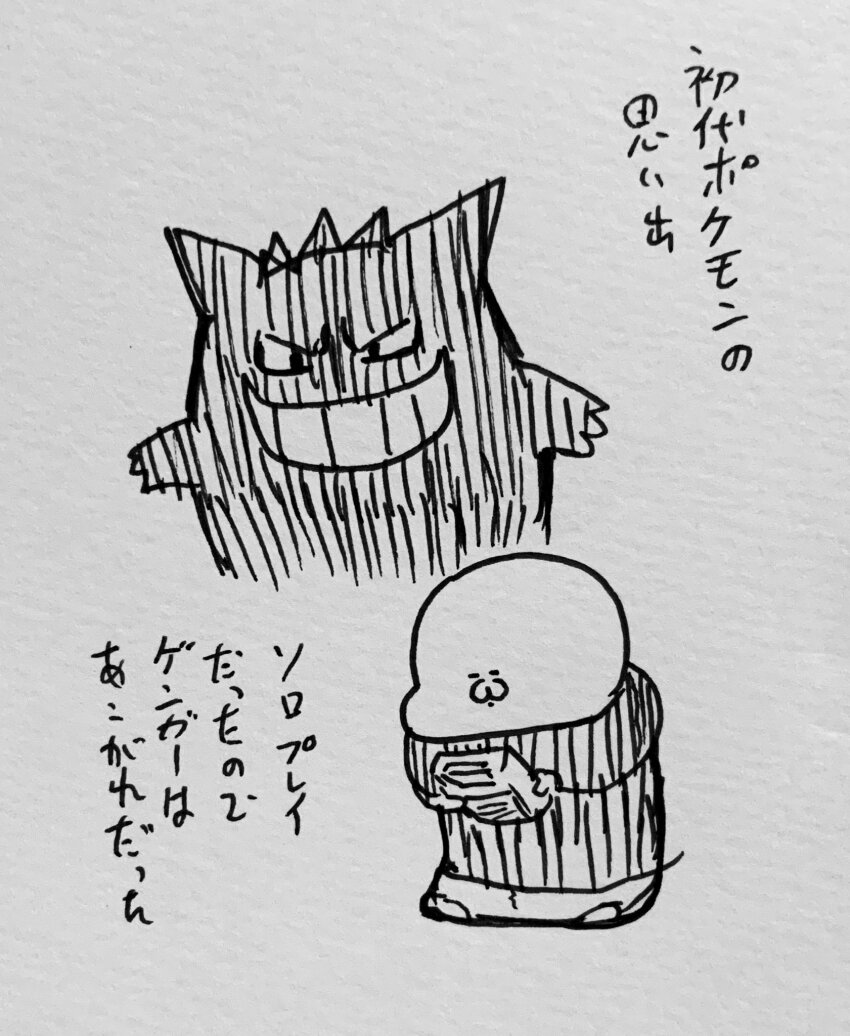 初代ポケモンの
思い出
ソロプレイ
だったので
ゲンガーは
あこがれだった